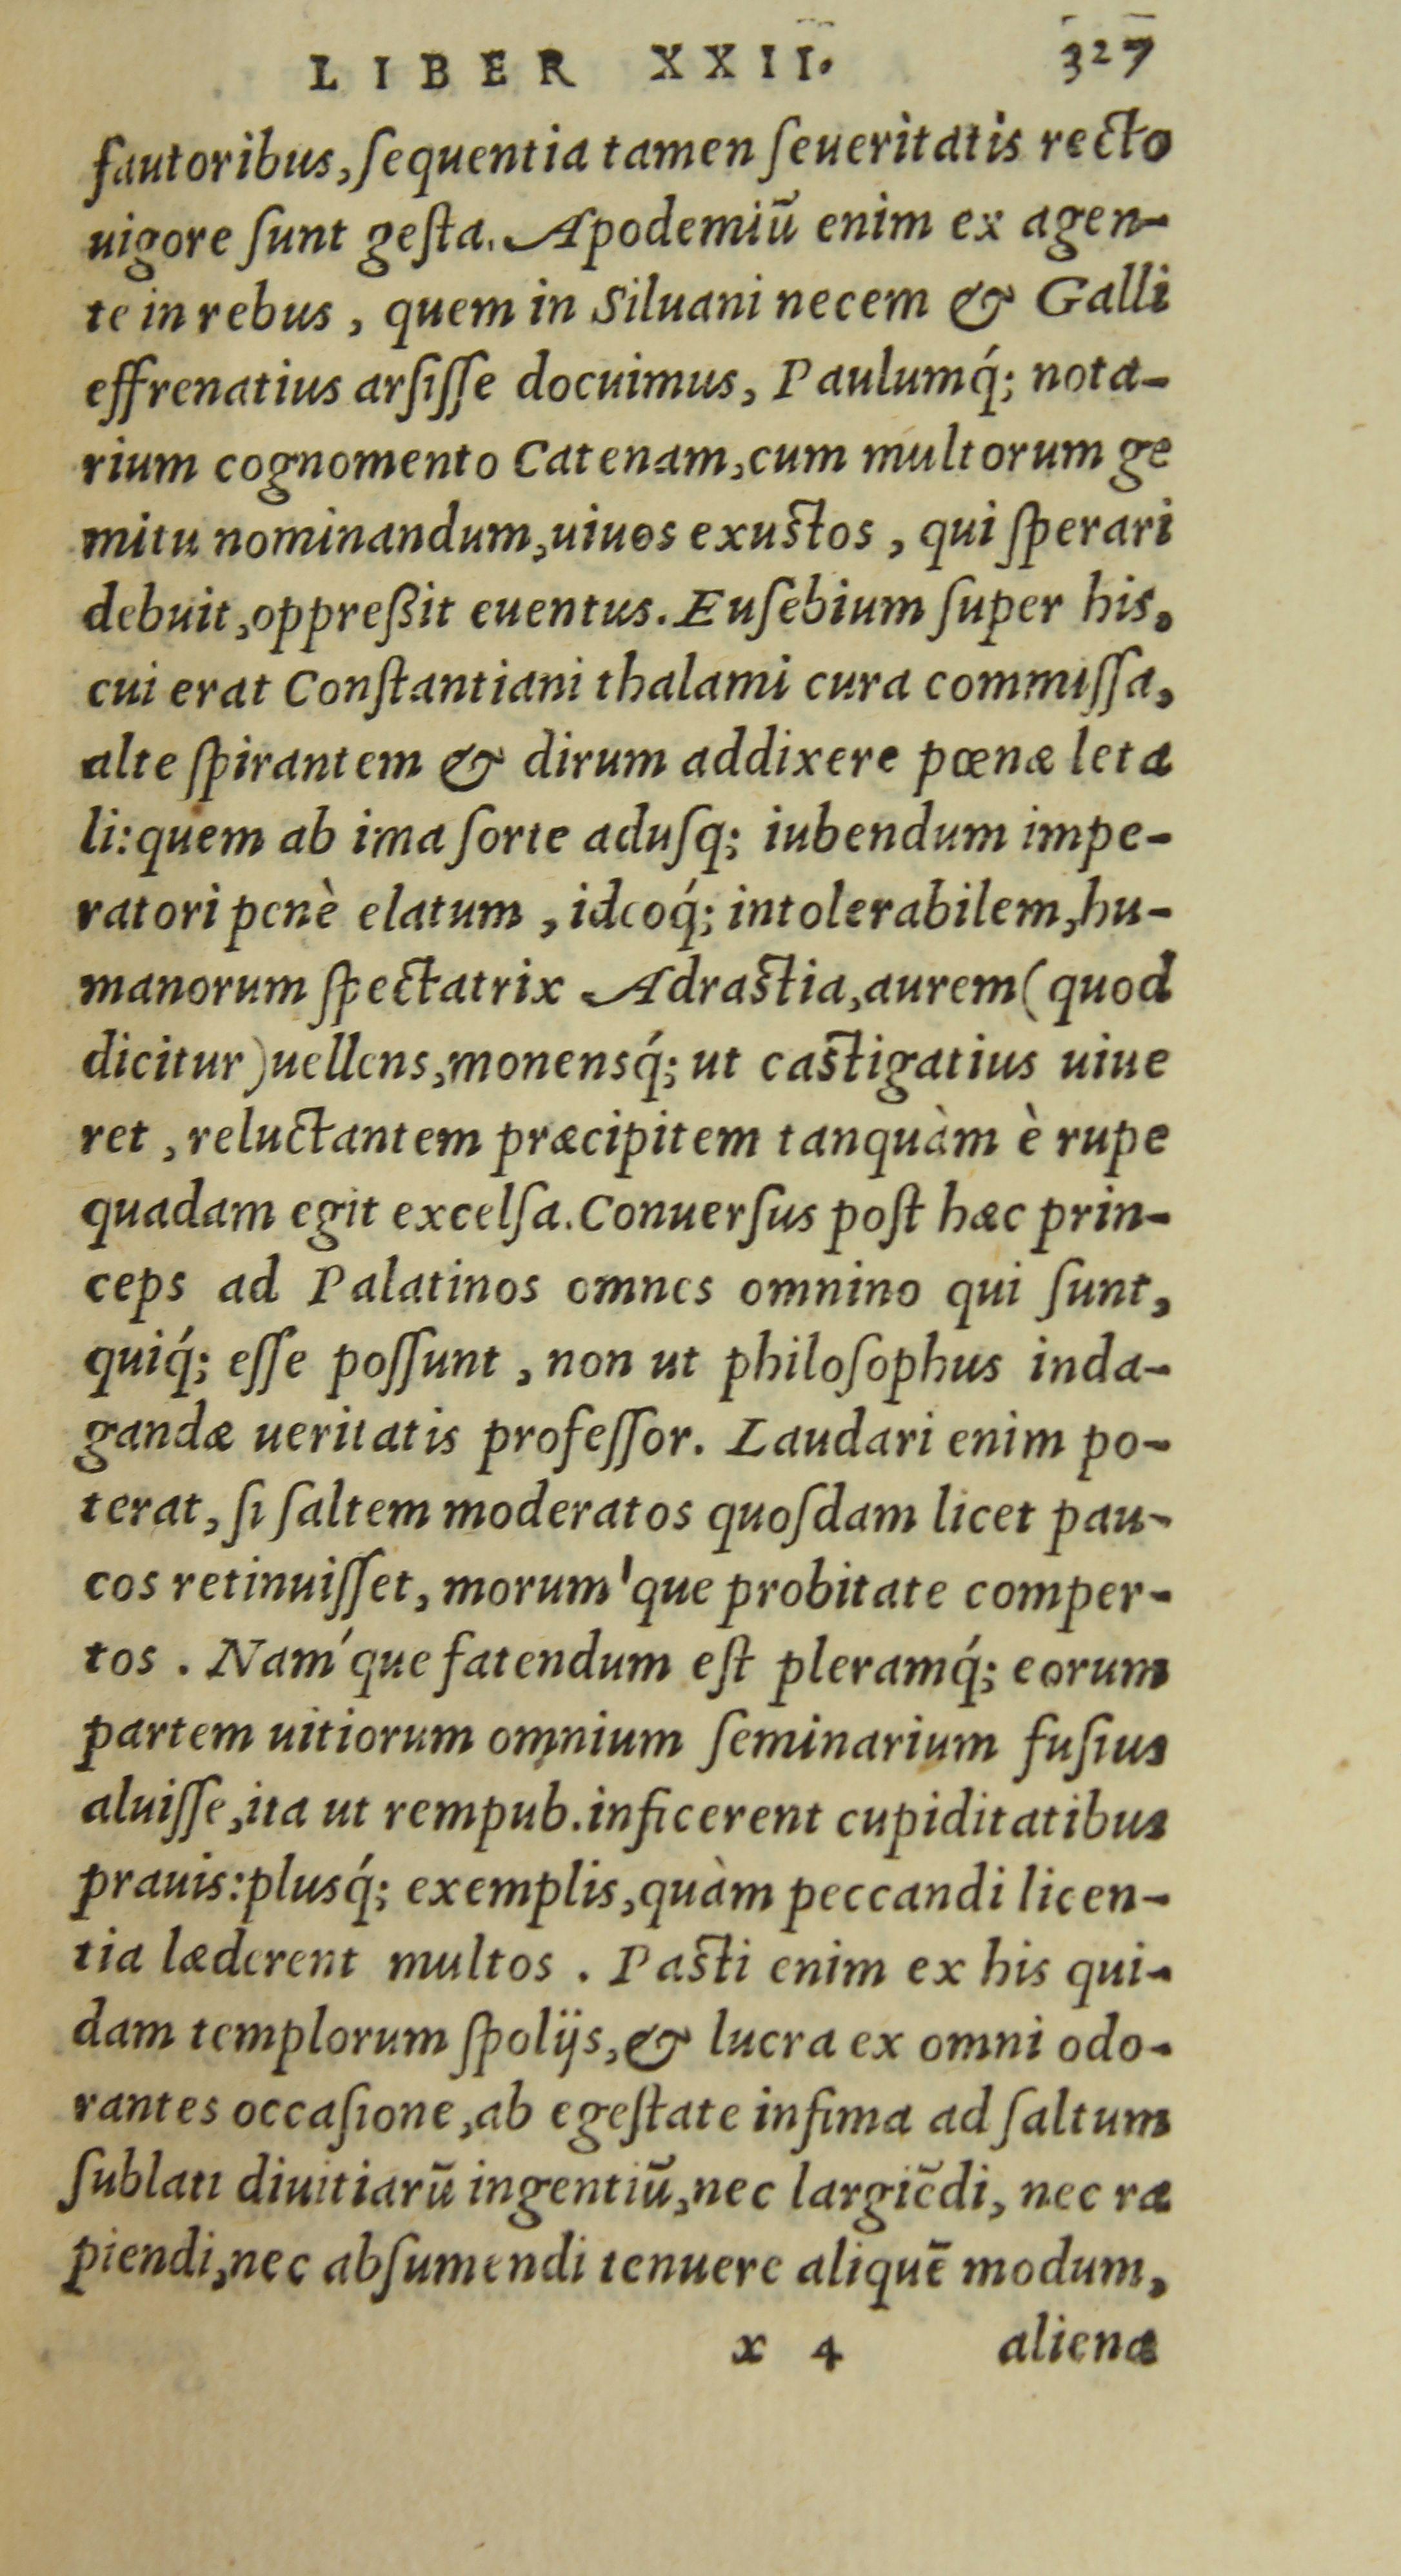 LIBER XXII. 327
fautoribus, ſequentia tamen ſeueritatis recto
uigore ſunt geſta. Apodemiū enim ex agen-
te in rebus, quem in Siluani necem & Galli
effrenatius arſiſſe docuimus, Paulumq́; nota-
rium cognomento Catenam, cum multorum ge
mitu nominandum, uiuos exuſtos, qui ſperari
debuit, oppreßit euentus. Euſebium ſuper his,
cui erat Conſtantiani thalami cura commiſſa,
alte ſpirantem & dirum addixere pœnæ leta
li: quem ab ima ſorte aduſq; iubendum impe-
ratori penè elatum, ideoq́; intolerabilem, hu-
manorum ſpectatrix Adraſtia, aurem (quod
dicitur) uellens, monensq́; ut caſtigatius uiue
ret, reluctantem præcipitem tanquàm è rupe
quadam egit excelſa. Conuerſus poſt hæc prin-
ceps ad Palatinos omnes omnino qui ſunt,
quiq́; eſſe poſſunt, non ut philoſophus inda-
gandæ ueritatis profeſſor. Laudari enim po-
terat, ſi ſaltem moderatos quoſdam licet pau-
cos retinuiſſet, morum'que probitate comper-
tos. Nam'que fatendum eſt pleramq́; eorum
partem uitiorum omnium ſeminarium fuſius
aluiſſe, ita ut rempub. inficerent cupiditatibus
prauis: plusq́; exemplis, quàm peccandi licen-
tia læderent multos. Paſti enim ex his qui-
dam templorum ſpolijs, & lucra ex omni odo-
rantes occaſione, ab egeſtate infima ad ſaltum
ſublati diuitiarū ingentiū, nec largiēdi, nec ra
piendi, nec abſumendi tenuere aliquē modum,
x 4 aliena